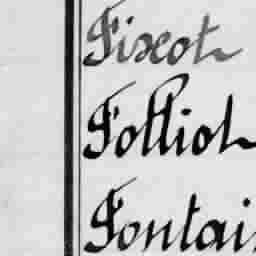 Fixot
Folliot
Fontai